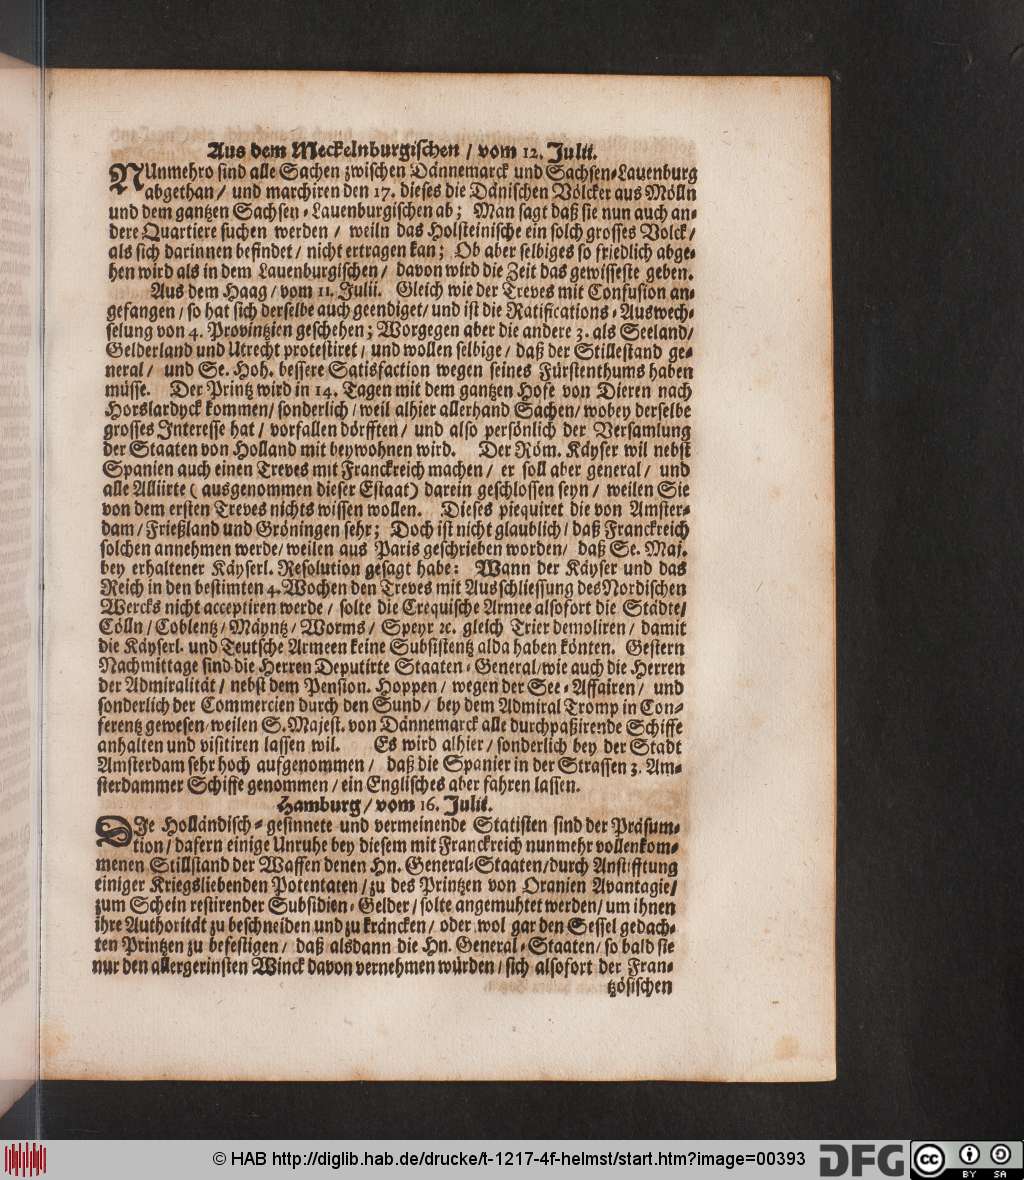 Aus dem Meckelnburgischen / vom 12. Julii.
NUnmehro sind alle Sachen zwischen Dännemarck und Sachsen-Lauenburg
abgethan / und marchiren den 17. dieses die Dänischen Völcker aus Mölln
und dem gantzen Sachsen-Lauenburgischen ab; Man sagt daß sie nun auch an-
dere Quartiere suchen werden / weiln das Holsteinische ein solch grosses Volck /
als sich darinnen befindet / nicht ertragen kan; Ob aber selbiges so friedlich abge-
hen wird als in dem Lauenburgischen / davon wird die Zeit das gewisseste geben.
Aus dem Haag / vom 11. Julii. Gleich wie der Treves mit Confusion an-
gefangen / so hat sich derselbe auch geendiget / und ist die Ratifications-Auswech-
selung von 4. Provintzien geschehen; Worgegen aber die andere 3. als Seeland /
Gelderland und Utrecht protestiret / und wollen selbige / daß der Stillestand ge-
neral / und Se. Hoh. bessere Satisfaction wegen seines Fürstenthums haben
müsse. Der Printz wird in 14. Tagen mit dem gantzen Hofe von Dieren nach
Horslardyck kommen / sonderlich / weil alhier allerhand Sachen / wobey derselbe
grosses Interesse hat / vorfallen dörfften / und also persönlich der Versamlung
der Staaten von Holland mit beywohnen wird. Der Röm. Käyser wil nebst
Spanien auch einen Treves mit Franckreich machen / er soll aber general / und
alle Alliirte ( ausgenommen dieser Estaat) darein geschlossen seyn / weilen Sie
von dem ersten Treves nichts wissen wollen. Dieses piequiret die von Amster-
dam / Frießland und Gröningen sehr; Doch ist nicht glaublich / daß Franckreich
solchen annehmen werde / weilen aus Paris geschrieben worden / daß Se. Maj.
bey erhaltener Käyserl. Resolution gesagt habe: Wann der Käyser und das
Reich in den bestimten 4. Wochen den Treves mit Ausschliessung des Nordischen
Wercks nicht acceptiren werde / solte die Crequische Armee alsofort die Städte /
Cölln / Coblentz / Mäyntz / Worms / Speyr ꝛc. gleich Trier demoliren / damit
die Käyserl. und Teutsche Armeen keine Subsistentz alda haben könten. Gestern
Nachmittage sind die Herren Deputirte Staaten-General / wie auch die Herren
der Admiralität / nebst dem Pension. Hoppen / wegen der See-Affairen / und
sonderlich der Commercien durch den Sund / bey dem Admiral Tromp in Con-
ferentz gewesen / weilen S. Majest. von Dännemarck alle durchpaßirende Schiffe
anhalten und visitiren lassen wil. Es wird alhier / sonderlich bey der Stadt
Amsterdam sehr hoch aufgenommen / daß die Spanier in der Strassen 3. Am-
sterdammer Schiffe genommen / ein Englisches aber fahren lassen.
Hamburg / vom 16. Julii.
DIe Holländisch-gesinnete und vermeinende Statisten sind der Präsum-
tion / dafern einige Unruhe bey diesem mit Franckreich nunmehr vollenkom-
menen Stillstand der Waffen denen Hn. General-Staaten / durch Anstifftung
einiger Kriegsliebenden Potentaten / zu des Printzen von Oranien Avantagie /
zum Schein restirender Subsidien-Gelder / solte angemuhtet werden / um ihnen
ihre Authorität zu beschneiden und zu kräncken / oder wol gar den Sessel gedach-
ten Printzen zu befestigen / daß alsdann die Hn. General-Staaten / so bald sie
nur den allergerinsten Winck davon vernehmen würden / sich alsofort der Fran-
tzösischen
© HAB http://diglib.hab.de/drucke/t-1217-4f-helmst/start.htm?image=00393
DFG
cc
BY SA